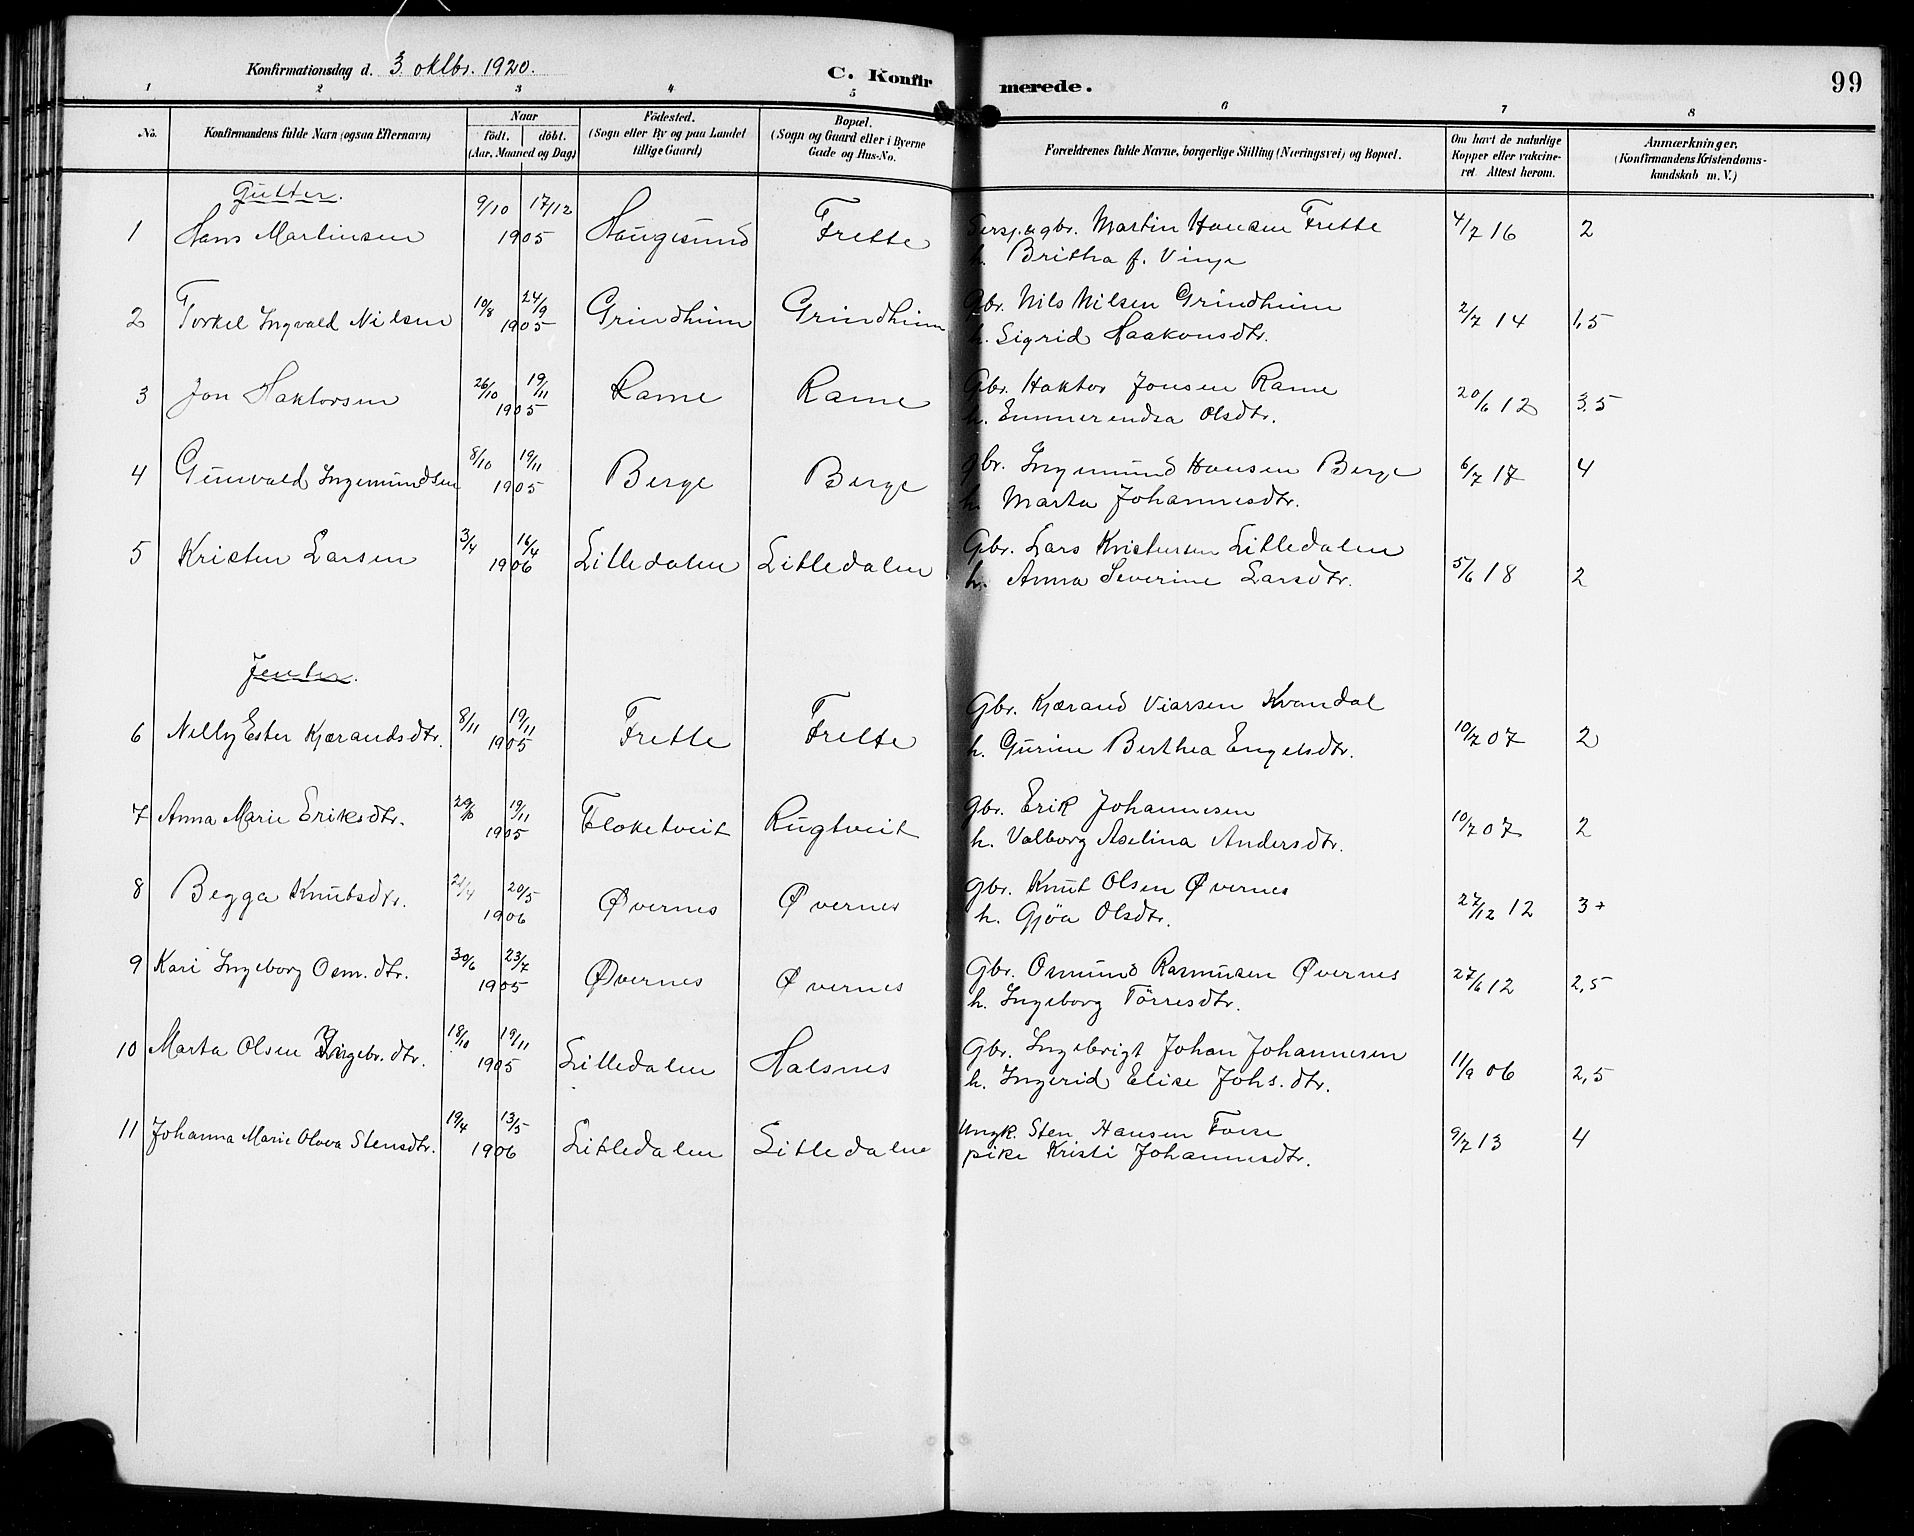 Konfirmationsdag d. 3 oktbr. 1920.
C. Konfirmerede.
99
1 2 3 4 5 6 7 8
No.
Konfirmandens fulde Navn (ogsaa Efternavn)
Naar
födt. döbt.
(Aar, Maaned og Dag)
Födested.
(Sogn eller By og paa Landet tillige Gaard)
Bopæl.
(Sogn og Gaard eller i Byerne Gade og Hus-No.
Forældrenes fulde Navne, borgerlige Stilling (Næringsvei) og Bopæl.
Om havt de naturlige Kopper eller vakcineret Attest herom.
Anmærkninger,
(Konfirmandens Kristendomskundskab m. V.)
Gutter.
1 Hans Martinsen 9/10 17/12 1905 Haugesund Frette gbr. Martin Hansen Frette 4/7 16 2
h. Britha f. Vinje
2 Torkel Ingvald Nilsen 10/8 24/9 1905 Grindheim Grindheim Gbr. Nils Nilsen Grindheim 2/7 14 1,5
h. Sigrid Haakonsdtr.
3 Jon Haktorsen 26/10 19/11 1905 Rame Rame Gbr. Haktor Jonsen Rame 20/6 12 3.5
h. Emmerendsa Olsdtr.
4 Gunvald Ingemundsen 8/10 19/11 1905 Berge Berge gbr. Ingemund Hansen Berge 6/7 17 4
h. Marta Johannesdtr.
5 Kristen Larsen 3/4 16/4 1906 Litledalen Litledalen Gbr. Lars Kristensen Litledalen 5/6 18 2
h. Anna Severine Larsdtr.
Jenter.
6 Nelly Ester Kjærandsdtr. 8/11 19/11 1905 Frette Frette Gbr. Kjærand Viarsen Kvandal 10/7 07 2
h. Gurine Berthea Engelsdtr.
7 Anna Marie Eriksdtr. 29/10 19/11 1905 Floketveit Rugtveit gbr. Erik Johannesen 10/7 07 2
h. Valborg Aselina Andersdtr.
8 Begga Knutsdtr. 21/4 20/5 1906 Øvernes Øvernes gbr. Knut Olsen Øvernes 27/12 12 3+
h. Gjøa Olsdtr.
9 Kari Ingeborg Osm.dtr. 30/6 23/7 1905 Øvernes Øvernes Gbr. Osmund Rasmusen Øvernes 27/6 12 2,5
h. Ingeborg Tørresdtr.
10 Marta Olsen Ingebr.dtr. 18/10 19/11 1905 Litledalen Halsnes Gbr. Ingebrigt Johan Johannesen 11/9 06 2,5
h. Ingerid Elise Johs.dtr.
11 Johanna Marie Olava Stensdtr. 19/4 13/5 1906 Litledalen Litledalen Ungk. Sten Hansen 9/7 13 4
pike Kristi Johannesdtr.